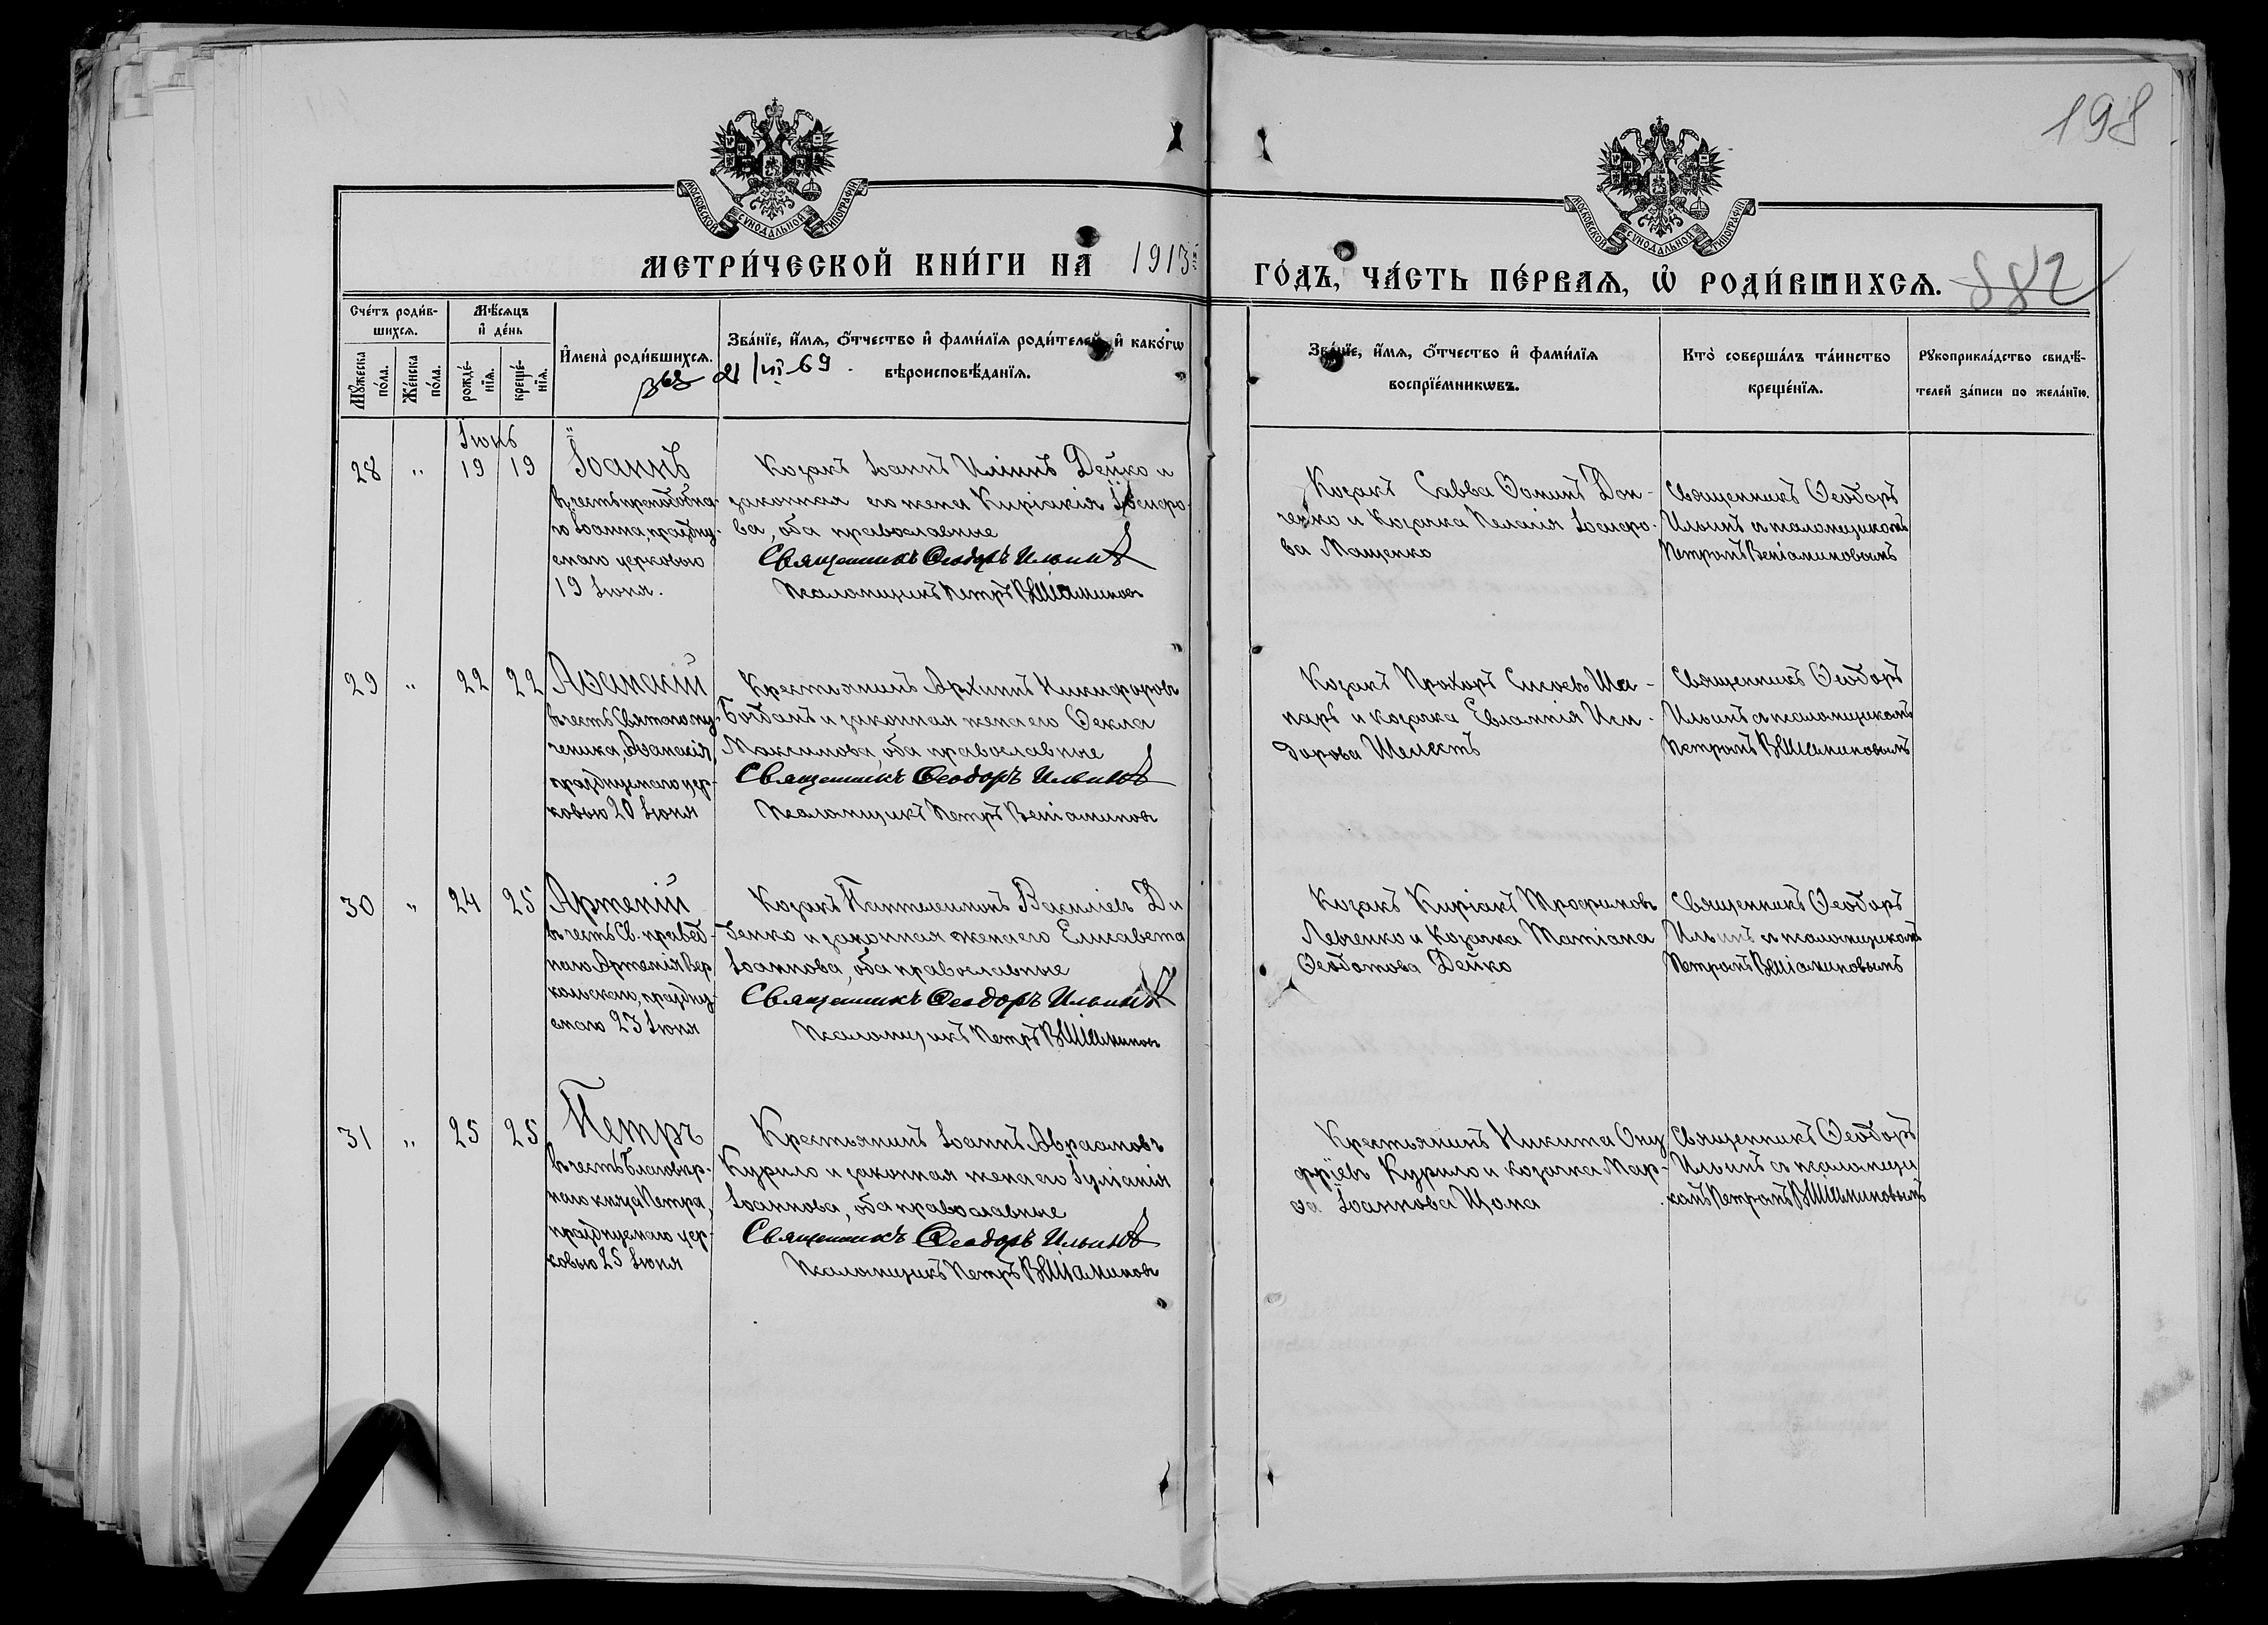 198
МОСКОВСКОЙ СѴНОДАЛЬНОЙ ТИПОГРАФІИ
МОСКОВСКОЙ СѴНОДАЛЬНОЙ ТИПОГРАФІИ
МЕТРИ́ЧЕСКОЙ КНИ́ГИ НА 1913
ГО́ДЪ, ЧА́СТЬ ПЕ́РВАѦ, Ѡ РОДИ́ВШИХСѦ.
882
Сче́тъ роди́в-
шихсѧ.
Мꙋ́жеска
по́ла.
Же́нска
по́ла.
Мѣ́сѧцъ
и де́нь
рожде́-
нїѧ.
креще́-
нїѧ.
И҆мена̀ роди́вшихсѧ.
Зва́нїе, и҆́мѧ, ѻ҆́тчество и҆ фами́лїѧ роди́телей, и҆ како́гѡ
вѣроисповѣ́данїѧ.
21/VI-69.
Зва́нїе, и҆́мѧ, ѻ҆́тчество и҆ фами́лїѧ
воспрїе́мникѡвъ.
Кто̀ соверша́лъ та́инство
креще́нїѧ.
Рꙋкоприкла́дство свидѣ́-
телей за́писи по жела́нїю.
Іюнь
28 " 19 19 Іоаннъ
въ честь преподобна-
го Іоанна, праздну-
емаго церковью
19 Іюня.
Козакъ Іоаннъ Иліинъ Дейко и
законная его жена Киріакія Іосифо-
ва, оба православные
Священникъ Ѳеодоръ Ильинъ
Псаломщикъ Петръ Веніаминовъ
Козакъ Савва Ѳоминъ Дон-
ченко и козачка Пелагія Іосифо-
ва Мащенко
Священникъ Ѳеодоръ
Ильинъ съ псаломщикомъ
Петромъ Веніаминовымъ
29 " 22 22 Аѳанасій
въ честь Святого му-
ченика Аѳанасія,
празднуемаго цер-
ковью 20 Іюня
Крестьянинъ Архипъ Никифоровъ
Богданъ и законная жена его Ѳекла
Максимова, оба православные
Священникъ Ѳеодоръ Ильинъ
Псаломщикъ Петръ Веніаминовъ
Козакъ Прохоръ Сисоевъ Ша-
паръ и козачка Евлампія Иси-
дорова Шелестъ
Священникъ Ѳеодоръ
Ильинъ съ псаломщикомъ
Петромъ Веніаминовымъ
30 " 24 25 Артемій
въ честь Св. правед-
наго Артемія Вер
кольскаго, праздну-
емаго 23 Іюня
Козакъ Пантелеимонъ Василіевъ Ди
денко и законная жена его Елисавета
Іоаннова, оба православные
Священникъ Ѳеодоръ Ильинъ
Псаломщикъ Петръ Веніаминовъ
Козакъ Киріакъ Трофимовъ
Левченко и козачка Татіана
Ѳеодотова Дейко
Священникъ Ѳеодоръ
Ильинъ съ псаломщикомъ
Петромъ Веніаминовымъ
31 " 25 25 Петръ
въ честь благовѣр-
наго князя Петра,
празднуемаго цер-
ковью 25 Іюня
Крестьянинъ Іоаннъ Авраамовъ
Курило и законная жена его Іуліанія
Іоаннова, оба православные
Священникъ Ѳеодоръ Ильинъ
Псаломщикъ Петръ Веніаминовъ
Крестьянинъ Никита Ону
фріевъ Курило и козачка Мар-
ѳа Іоаннова Щома
Священникъ Ѳеодоръ
Ильинъ съ псаломщи
комъ Петромъ Веніаминовымъ